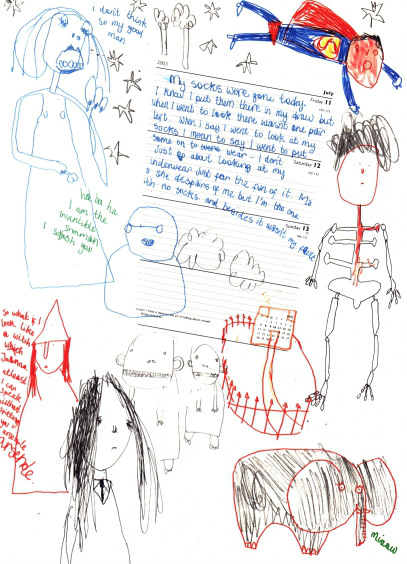 I don't think
so my good
man
2003
July
Friday 11
My socks were gone today.
I know I put them there in my draw but
when I went to look there wasn't one pair
left. When I say I went to look at my
socks I mean to say I went to put
some on to wear - I don't
Saturday 12
just go about looking at my
underwear just for the fun of it. Ma
she despairs of me but I'm the one
with no socks and besides it wasn't my
Sunday 13
ha ha ha
I am the
invincible
snowman
I squash you
so what if I
look like
a witch
which
Johnna
atleast
I can
speak
without
spitting
you is